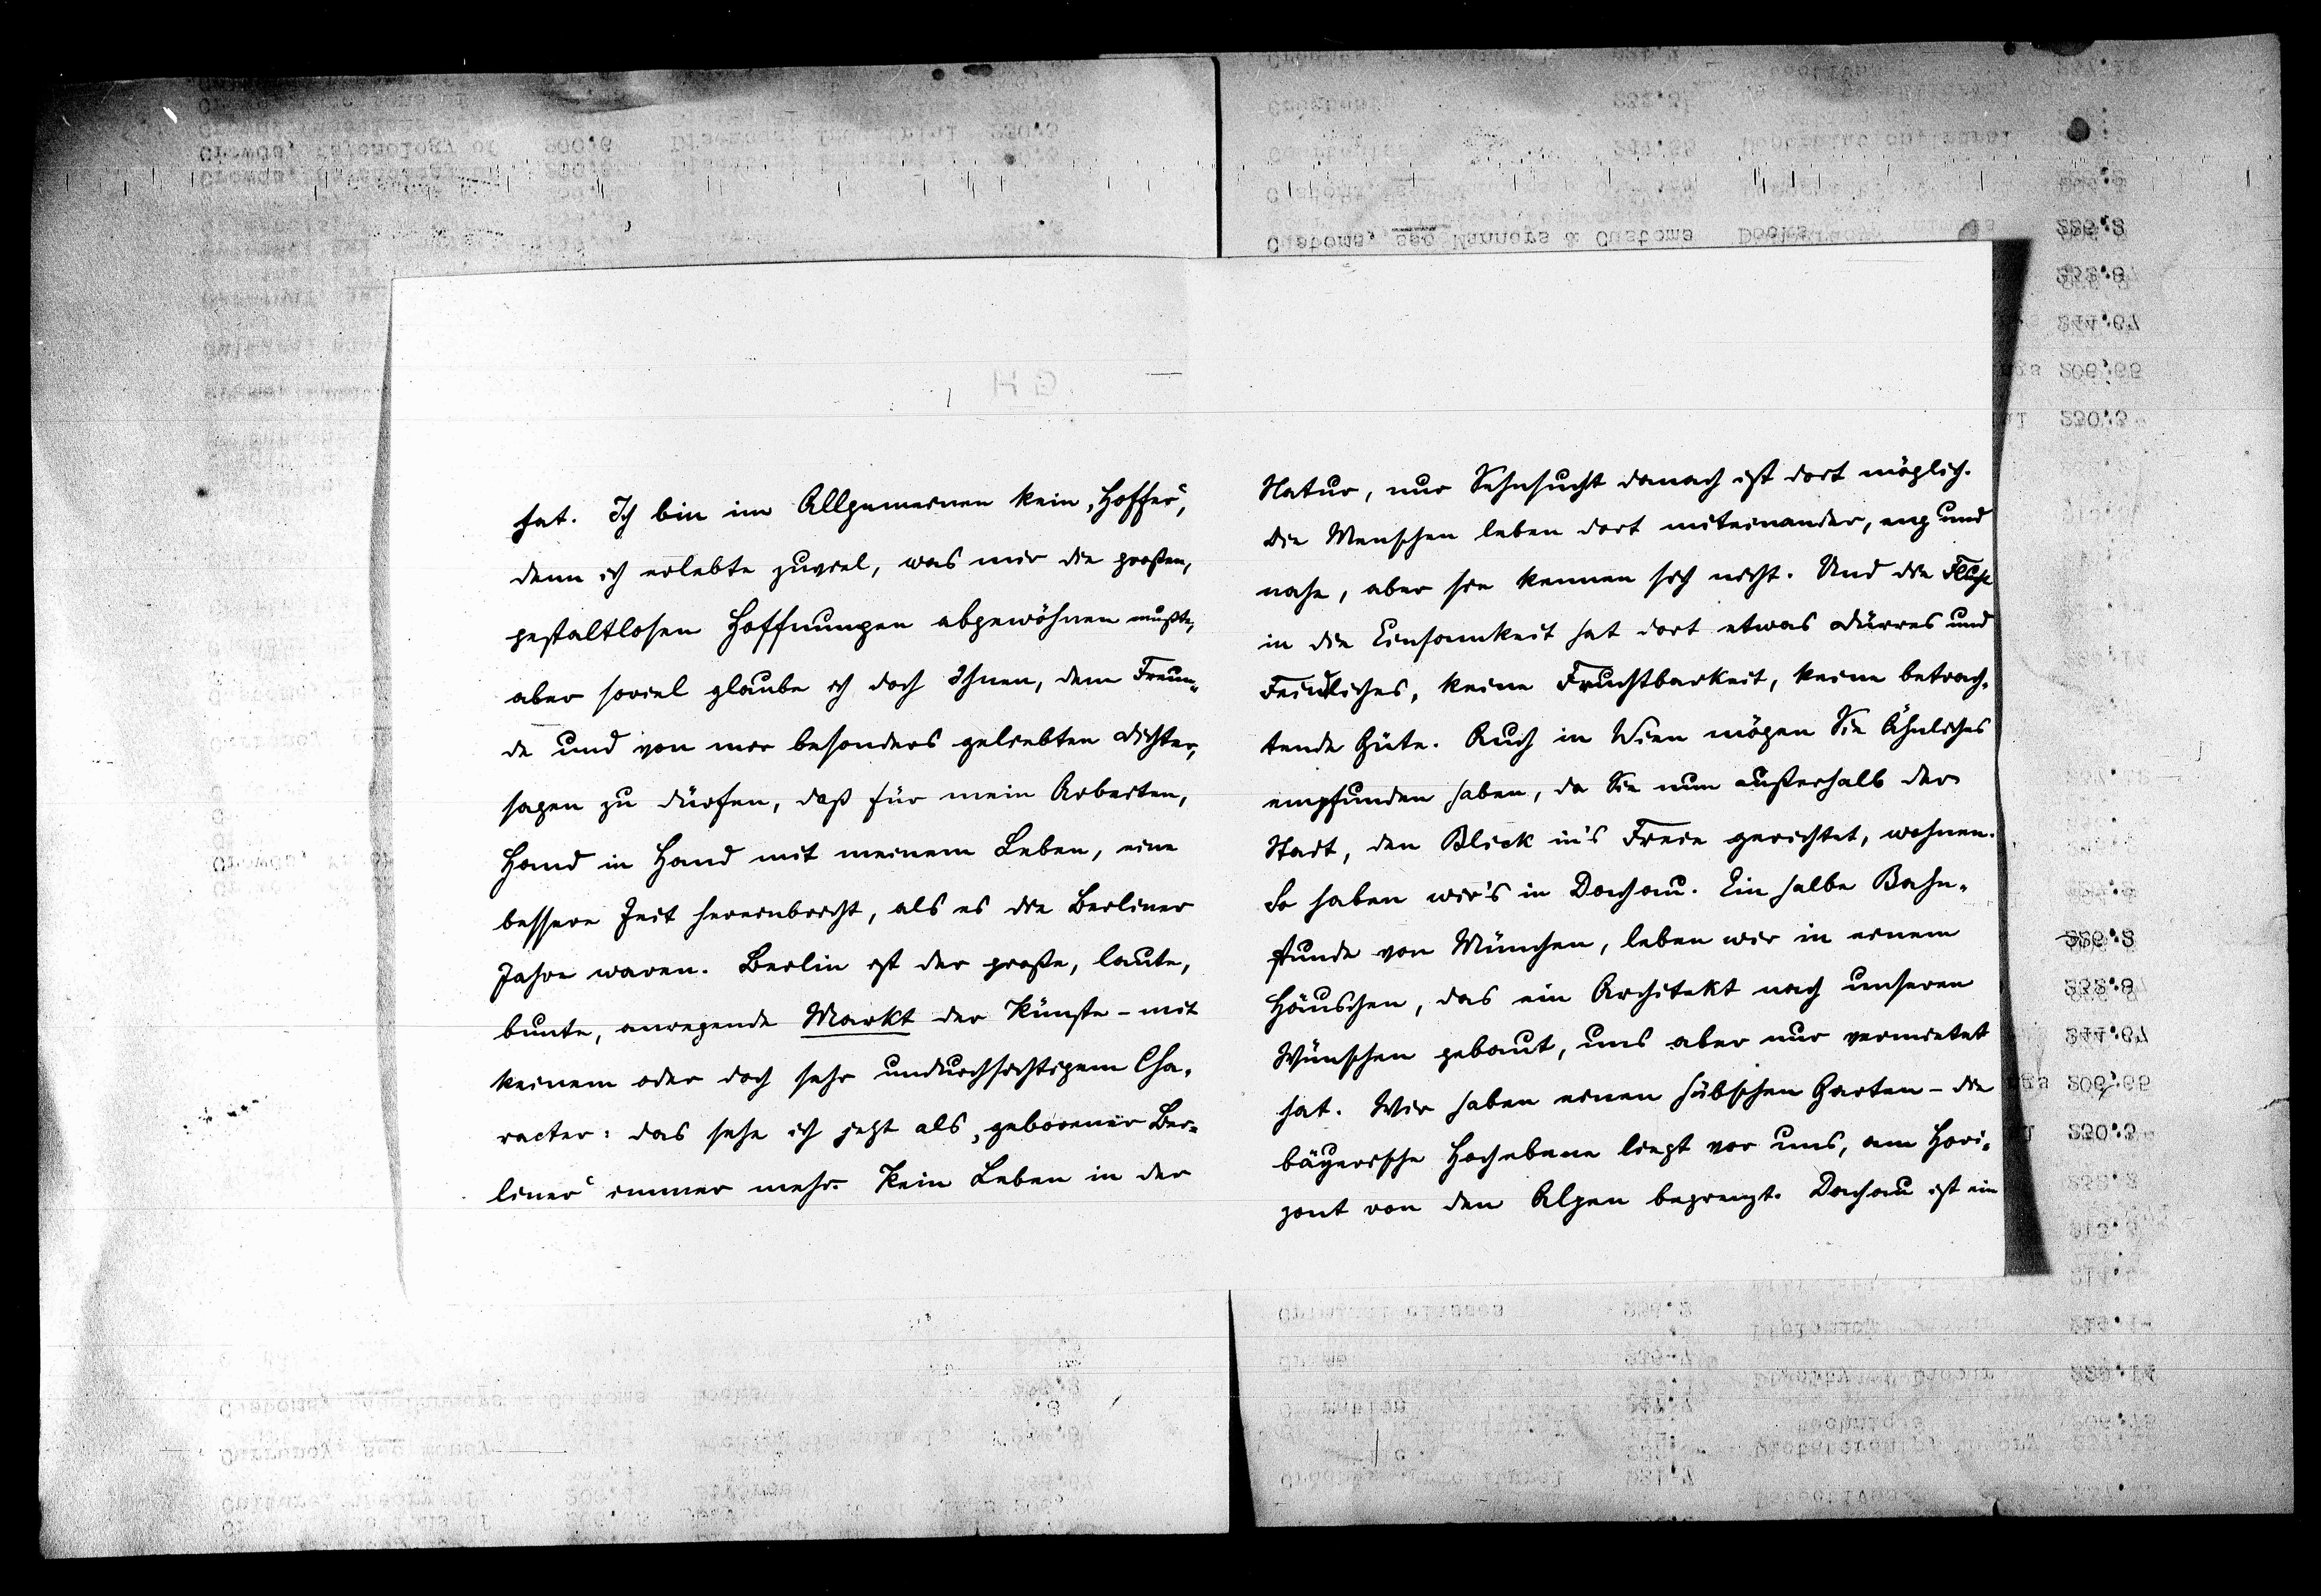 hat. Ich bin im Allgemeinen kein „Hoffer“,
denn ich erlebte zuviel, was mir die großen,
gestaltlosen Hoffnungen abgewöhnen mußte,
aber soviel glaube ich doch Ihnen, dem Freun-
de und von mir besonders geliebten Dichter,
sagen zu dürfen, daß für mein Arbeiten,
Hand in Hand mit meinem Leben, eine
bessere Zeit hereinbricht, als es die Berliner
Jahre waren. Berlin ist der große, laute,
bunte, anregende Markt der Künste – mit
keinem oder doch sehr undurchsichtigem Cha-
racter: das sehe ich jetzt als „geborener Ber-
liner“ immer mehr. Kein Leben in der
Natur, nur Sehnsucht danach ist dort möglich.
Die Menschen leben dort miteinander, eng und
nahe, aber sie kennen sich nicht. Und die Flucht
in die Einsamkeit hat dort etwas Dürres und
Feindliches, keine Fruchtbarkeit, keine betrach-
tende Güte. Auch in Wien mögen Sie Ähnliches
empfunden haben, da Sie nun außerhalb der
Stadt, den Blick in's Freie gerichtet, wohnen.
So haben wir's in Dachau. Ein halbe Bahn-
stunde von München, leben wir in einem
Häuschen, das ein Architekt nach unseren
Wünschen gebaut, uns aber nur vermietet
hat. Wir haben einen hübschen Garten – die
bäyerische Hochebene liegt vor uns, am Hori-
zont von den Alpen begrenzt. Dachau ist ein